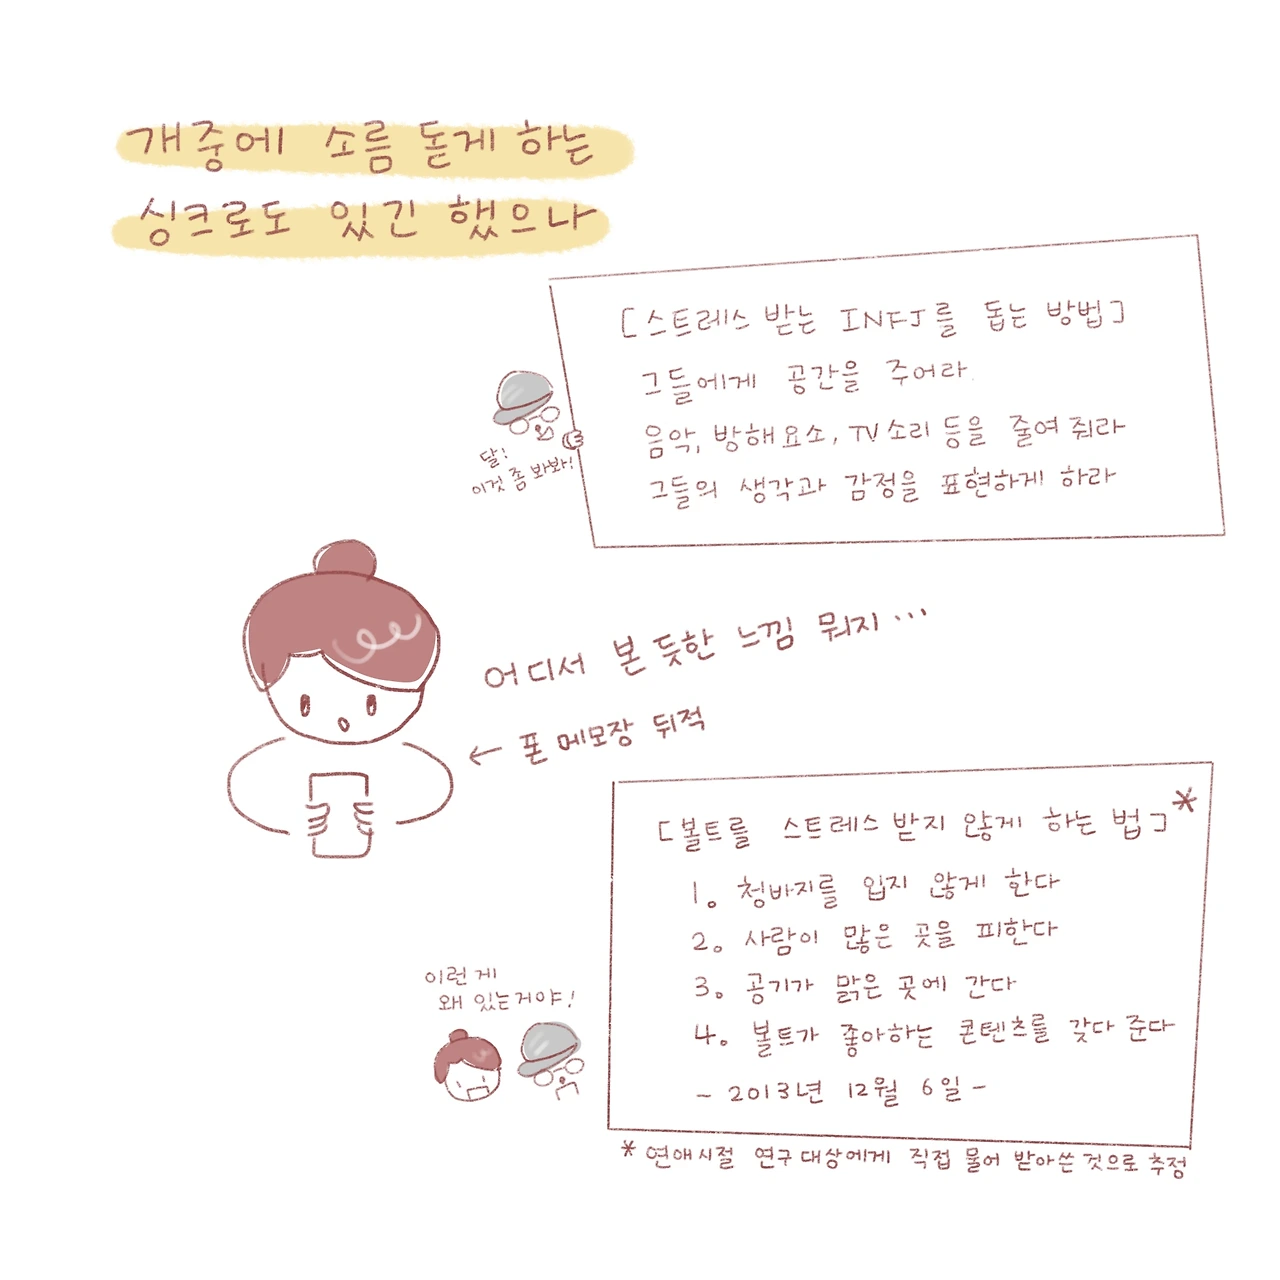 개중에 소름 돋게 하는
싱크로도 있긴 했으나
[스트레스 받는 INFJ를 돕는 방법]
그들에게 공간을 주어라
음악, 방해요소, TV소리 등을 줄여줘라
그들의 생각과 감정을 표현하게 하라
달!
이것 좀 봐봐!
어디서 본 듯한 느낌 뭐지...
← 폰 메모장 뒤적
[볼트를 스트레스 받지 않게 하는 법]*
1. 청바지를 입지 않게 한다
2. 사람이 많은 곳을 피한다
3. 공기가 맑은 곳에 간다
4. 볼트가 좋아하는 콘텐츠를 갖다 준다
- 2013년 12월 6일 -
이런 게
왜 있는거야!
* 연애시절 연구대상에게 직접 물어 받아쓴 것으로 추정